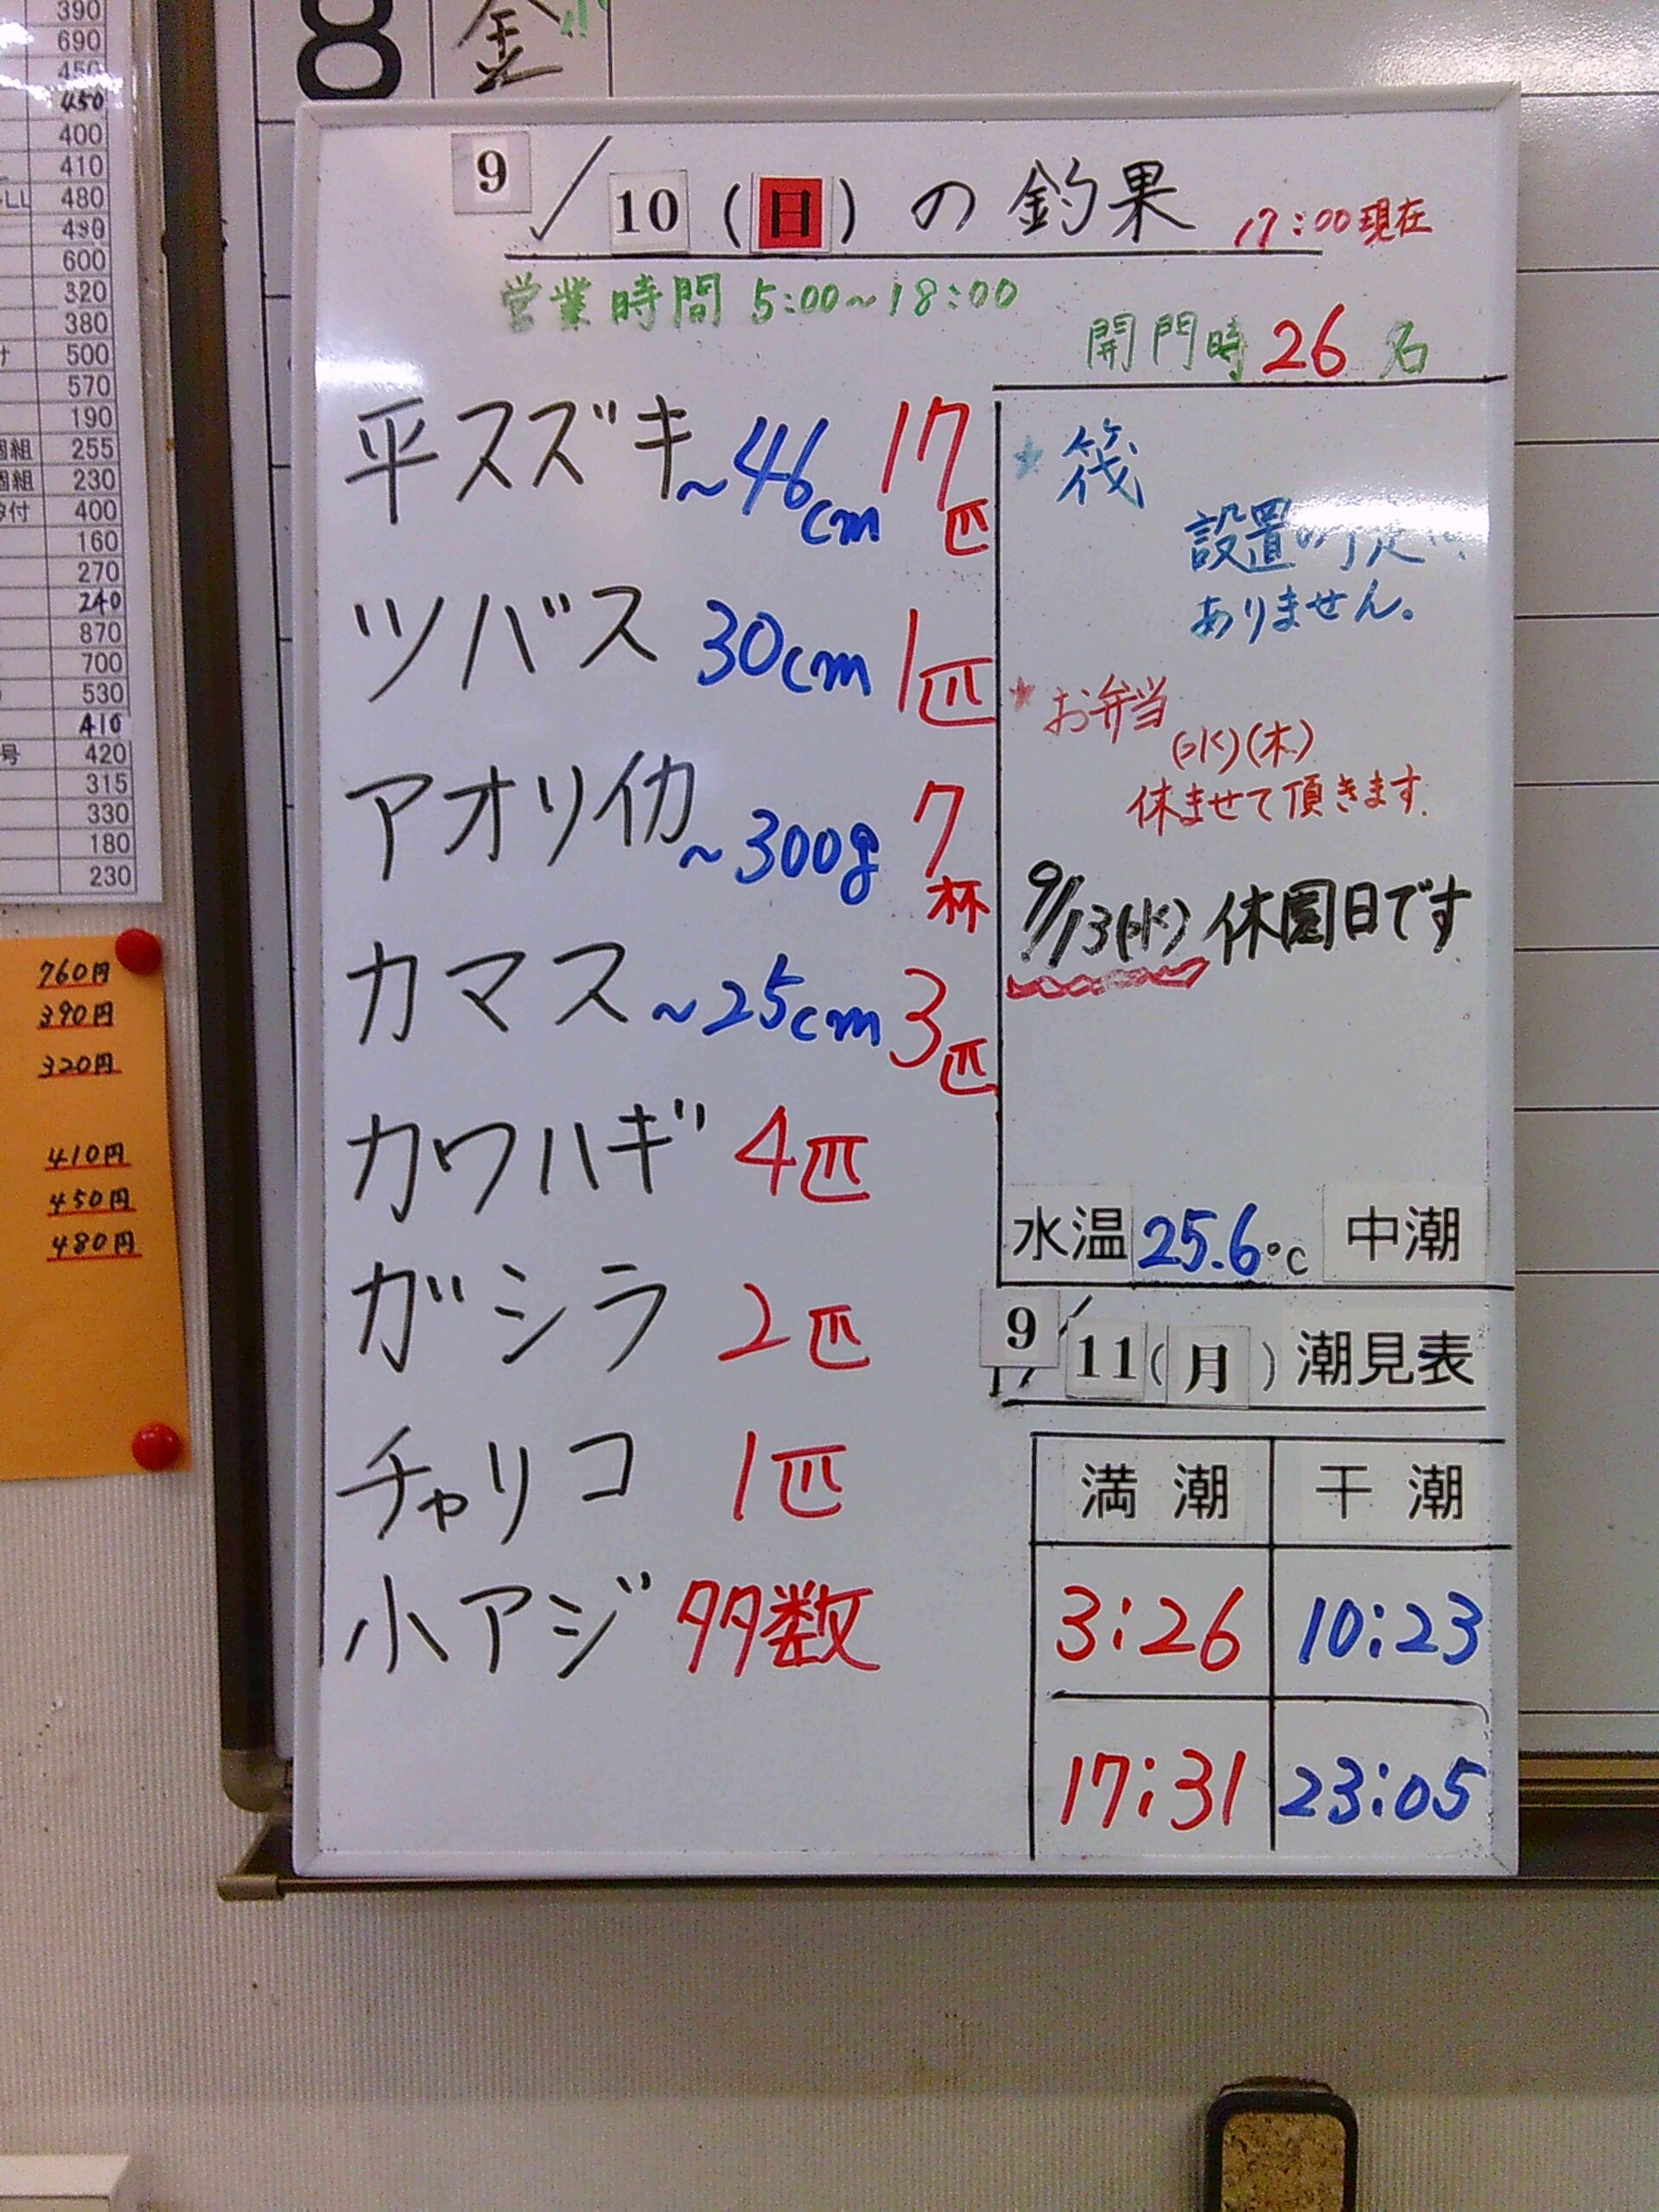 390
690
450
450
400
410
LL 480
490
600
320
380
500
570
190
個組 255
個組 230
付 400
160
270
240
870
700
530
410
号 420
315
330
180
230
760円
390円
320円
410円
450円
480円
8 金
9/10(日)の釣果 17:00現在
営業時間 5:00~18:00
開門時 26名
平スズキ~46cm 17匹
ツバス 30cm 1匹
アオリイカ~300g 7杯
カマス~25cm 3匹
カワハギ 4匹
ガシラ 2匹
チャリコ 1匹
小アジ 多数
★筏
設置の予定は
ありません。
★お弁当
(水)(木)
休ませて頂きます.
9/13(水)休園日です
水温 25.6℃ 中潮
9/11(月)潮見表
満潮 干潮
3:26 10:23
17:31 23:05